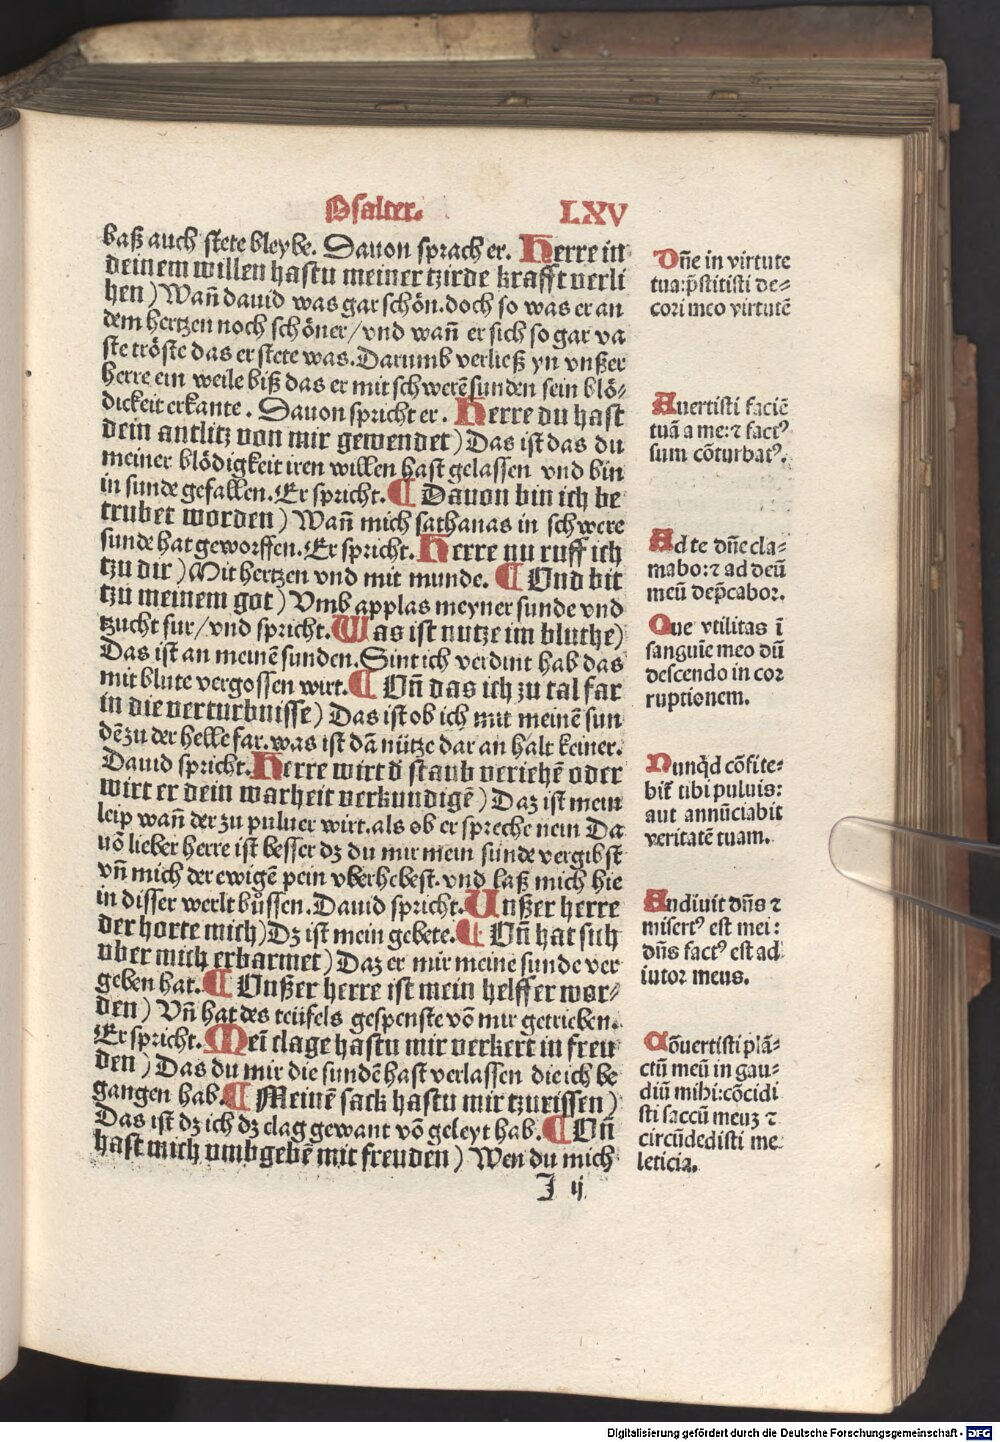 Psalter. LXV
baß auch stete bleybe. Dauon sprach er. Herre in
deinem willen hastu meiner tzirde krafft verli
hen) Wañ dauid was gar schön. doch so was er an
dem hertzen noch schöner/ vnd wañ er sich so gar va
ste tröste das er stete was. Darumb verließ yn vnßer
herre ein weile biß das er mit schwerē sunden sein blö⸗
dickeit erkante. Dauon spricht er. Herre du hast
dein antlitz von mir gewendet) Das ist das du
meiner blödigkeit iren willen hast gelassen vnd bin
in sunde gefallen. Er spricht. ¶ Dauon bin ich be
trubet worden) Wañ mich sathanas in schwere
sunde hat geworffen. Er spricht. Herre nu ruff ich
tzu dir) Mit hertzen vnd mit munde. ¶ Vnd bit
tzu meinem got) Vmb applas meyner sunde vnd
tzucht fur/ vnd spricht. Was ist nutze im bluthe)
Das ist an meinē sunden. Sint ich verdint hab das
mit blute vergossen wirt. ¶ Vñ das ich zu tal far
in die verturbnisse) Das ist ob ich mit meinē sun
dē zu der helle far. was ist dā nütze dar an halt keiner.
Dauid spricht. Herre wirt d̄ staub veriehē oder
wirt er dein warheit verkundigē) Daz ist mein
leip wañ der zu puluer wirt. als ob er spreche nein Da
uō lieber herre ist besser dz du mir mein sunde vergibst
vñ mich der ewigē pein vberhebest. vnd laß mich hie
in disser werlt büssen. Dauid spricht. Vnßer herre
der horte mich) Dz ist mein gebete. ¶ Vñ hat sich
vber mich erbarmet) Daz er mir meine sunde ver
geben hat. ¶ Vnßer herre ist mein helffer wor⸗
den) Vñ hat des teüfels gespenste vō mir getrieben.
Er spricht. Mei clage hastu mir verkert in freu
den) Das du mir die sundē hast verlassen die ich be
gangen hab. ¶ Meinē sack hastu mir tzurissen)
Das ist dz ich dz clag gewant vō geleyt hab. ¶ Vñ
hast mich vmbgebē mit freuden) Wen du mich
J ij
Dñe in virtute
tua: p̄stitisti de⸗
cori meo virtutē
Auertisti faciē
tuā a me: ⁊ factꝰ
sum cōturbatꝰ.
Ad te dñe cla⸗
mabo: ⁊ ad deū
meū dep̄cabor.
Que vtilitas ī
sanguīe meo dū
descendo in cor
ruptionem.
Nunq̇d cōfite⸗
bit̄ tibi puluis:
aut annūciabit
veritatē tuam.
Audiuit dñs ⁊
misertꝰ est mei:
dñs factꝰ est ad
iutor meus.
Cōuertisti plā⸗
ctū meū in gau⸗
diū mihi: cōcidi
sti saccū meuꝫ ⁊
circūdedisti me
leticia.
Digitalisierung gefördert durch die Deutsche Forschungsgemeinschaft - DFG